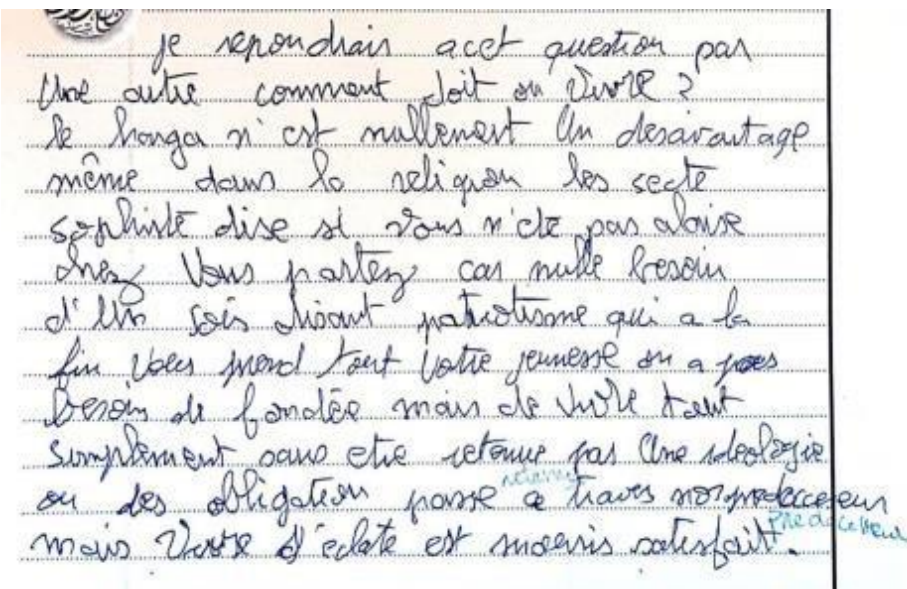 je repondrais acet question par
Une autre comment doit on vivre ?
le hanga n'est nullement Un desavantage
même dans la religion les secte
sophiste dise si vous n'ete pas alaise
chez Vous partez car nulle besoin
d'Un sois disant patriotisme qui a la
fin Vous prend tout Votre jeunesse on a pas
besoin de fondée mais de Vivre tout
simplement sans etre retenue par Une ideologie
ou des obligation passe a traves nos predecceseur
mais Vivre s'eclate et mouris satisfait.